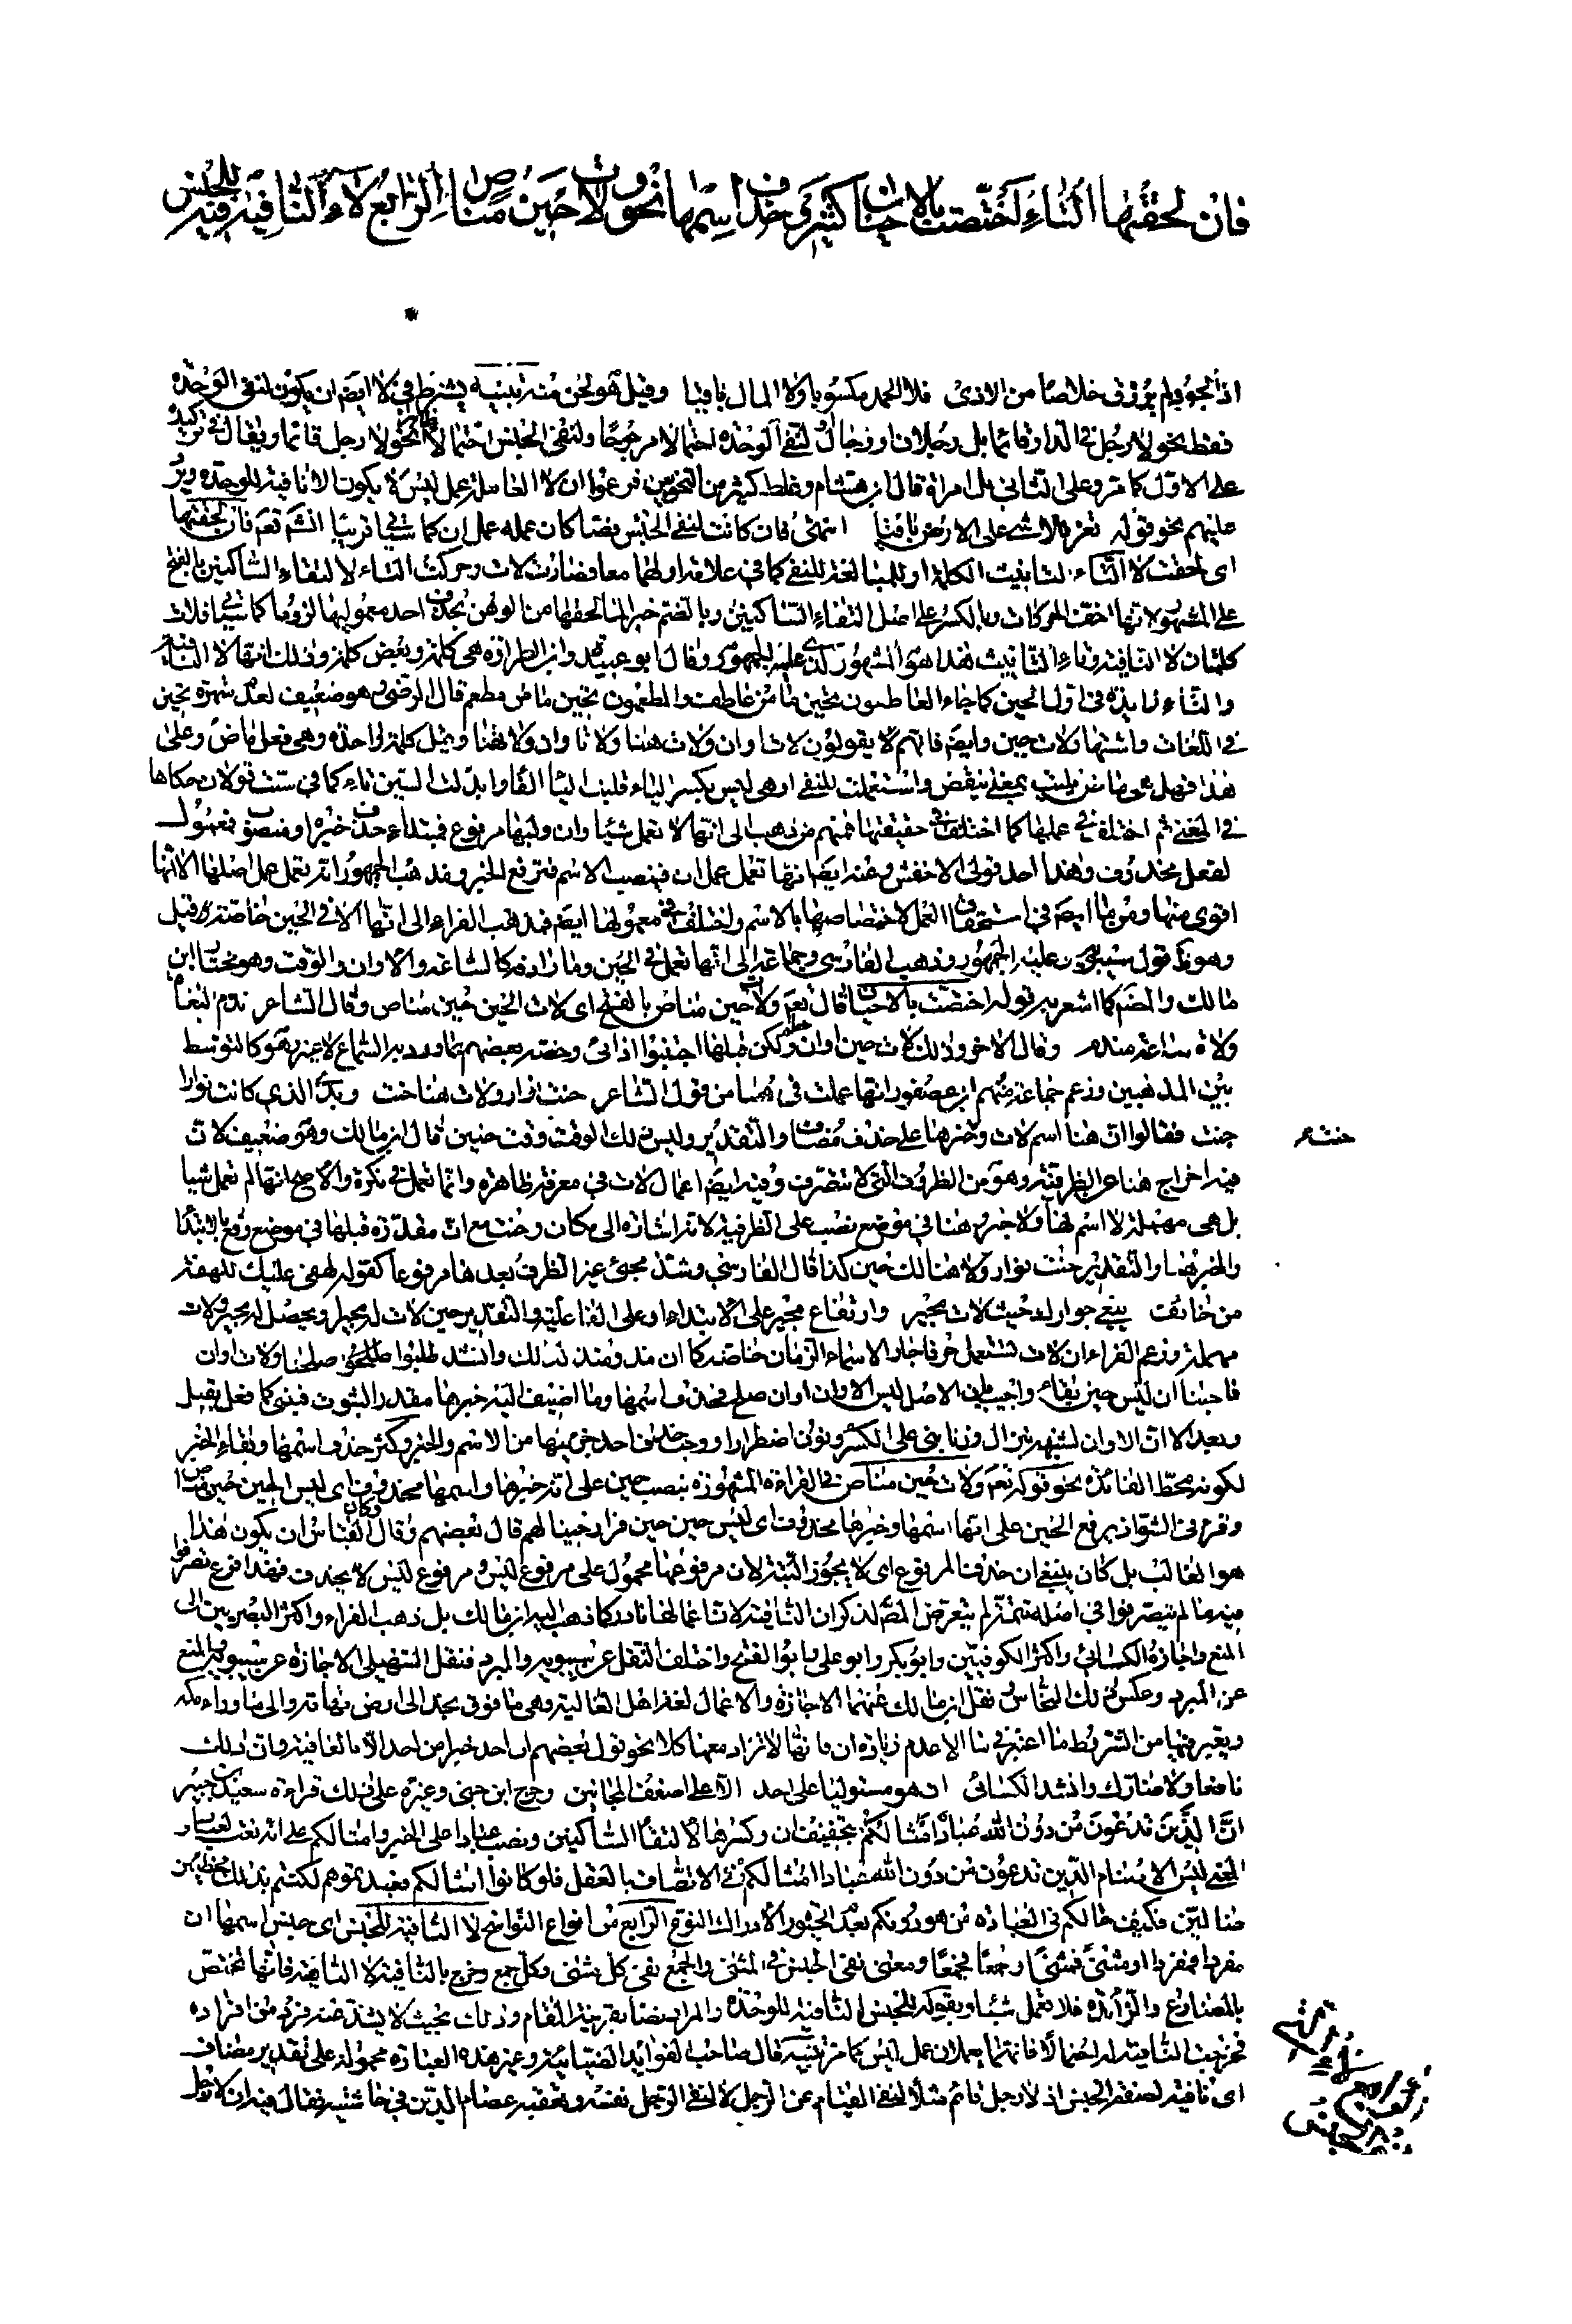 فان لحقتها التاء اختصت بالاحيان وكثر حذف اسمها نحو ولات حين مناص الرابع لاء النافية للجنس
اذا الجود لم يرزق خلاصا من الاذى فلا الحمد مكسوبا ولا المال باقيا وقيل هو لحن منه تنبيه يشترط في لا ايضا ان يكون لنفى الوحدة
فقط نحو لا رجل في الدار قائما بل رجلان او رجال لنفى الوحدة احتمالا مرجوحا ولنفى الجنس احتمالا نحو لا رجل قائما ويقال في توكيده
على الاول كما مر وعلى الثاني بل امراة قال ابن هشام وغلط كثير من النحويين فزعموا ان لا العاملة عمل ليس لا يكون الا نافية للوحدة ويرد
عليهم نحو قوله تعز فلا شئ على الارض باقيا انتهى فان كانت لنفى الجنس نصا كان عمله عمل ان كما سياتي قريبا انشم تعم فان لحقتها
اى لحقت لا التاء لتانيث الكلمة او للمبالغة للنفى كما في علامة او لهما معا فصارت لات وحركت التاء لالتقاء الساكنين بالفتح
على المشهور لانها اخف الحركات وبالكسر على اصل التقاء الساكنين وبالضم خبرا لما لحقها من الوهن بحذف احد معموليها لزوما كما سياتي فلات
كلمتان لا النافية وتاء التانيث هذا هو المشهور الذى عليه الجمهور وقال ابو عبيدة وابن الطراوة هى كلمة وبعض كلمة وذلك انها لا النافية
والتاء زايدة في اول الحين كما جاء العاطفون تحين ما من عاطف والمطعمون تحين ما من مطعم قال الرضى وهو ضعيف لعدم شهرة تحين
في اللغات واشتهار لات حين وايضا فانهم لا يقولون لات اوان ولات هنا ولا تاوان ولا تهنا وقيل كلمة واحدة وهى فعل ماض وعلى
هذا فهل هى ماضى يليت بمعنى ينقص واستعملت للنفى او هى ليس بكسر الياء قلبت الياء الفا وابدلت السين تاء كما في ست قولان حكاها
في المغنى ثم اختلف في عملها كما اختلف في حقيقتها فمنهم من ذهب الى انها لا تعمل شيئا وان وليها مرفوع فمبتداء حذف خبره او منصوب فمعمول
لفعل محذوف وهذا احد قولى الاخفش وعنه ايضا انها تعمل عمل ان فتنصب الاسم فترفع الخبر ومذهب الجمهور انه تعمل عمل اصلها لانها
اقوى منها ومن ما ايضا في استحقاق العمل لاختصاصها بالاسم واختلف في معمولها ايضا فمذهب الفراء الى انها الا في الحين خاصة وقيل
وهو ظ قول سيبويه وعليه الجمهور وذهب الفارسى وجماعة الى انها تعمل في الحين وما رادفه كالساعة والاوان والوقت وهو مختار ابن
مالك والمصم كما اشعر به قوله اختصت بالاحيان قال تعم ولات حين مناص بالفتح اى لات الحين حين مناص وقال الشاعر ندم البغاة
ولات ساعة مندم وقال الاخر وذلك لات حين اوان حلم ولكن قبلها اجتنبوا اذائى وخصه بعضهم بما ورد به السماع لا غير وهو كالتوسط
بين المذهبين وزعم جماعة منهم ابن عصفور انها عملت في هنا من قول الشاعر حنت نوار ولات هنا حنت وبدا الذى كانت نوارا
جنت فقالوا ان هنا اسم لات وخبرها على حذف مضاف والتقدير وليس ذلك الوقت وقت حنين قال ابن مالك وهو ضعيف لان
حنت عر
فيه اخراج هنا عن الظرفية وهو من الظروف التى لا تتصرف وفيه ايضا اعمال لات في معرفة ظاهرة وانما تعمل في نكرة والاصح انها لم تعمل شيئا
بل هى مهملة لا اسم لها ولا خبر وهنا في موضع نصب على الظرفية لانه اشارة الى مكان وحنت مع ان مقدرة قبلها في موضع رفع بالابتداء
والخبر هنا والتقدير حنت نوار ولا هنالك حنين كذا قال الفارسى وشذ مجئ غير الظرف بعدها مرفوعا كقوله لهفى عليك للهفة
من خائف يبغى جوارك حيث لات مجير وارتفاع مجير على الابتداء او على الفاعلية والتقدير حين لات له مجير او يحصل له مجير ولات
مهملة وزعم الفراء ان لات تستعمل حرفا جارا لاسماء الزمان خاصة كما ان مذ ومنذ كذلك وانشد طلبوا صلحنا ولات اوان
فاجبنا ان ليس حين بقاء واجيب بان الاصل ليس الاوان اوان صلح فحذف اسمها وما اضيف اليه خبرها مقدر الثبوت فبنى كما فعل بقبل
وبعد الا ان الاوان لشبهه بنزال وزنا بنى على الكسر ونون اضطرارا ووجب حذف احد جزئيها من الاسم والخبر وكثر حذف اسمها وبقاء الخبر
لكونه محط الفائدة نحو قوله تعم ولات حين مناص في القراءة المشهورة بنصب حين على انه خبرها واسمها محذوف اى ليس الحين حين مناص
وقرئ في الشواذ برفع الحين على انها اسمها وخبرها محذوف اى ليس حين حين فرار حينا لهم قال بعضهم وقال وكان القياس ان يكون هذا
هو الغالب بل كان ينبغى ان حذف المرفوع اى لا يجوز البتة لان مرفوعها محمول على مرفوع ليس ومرفوع ليس لا يحذف فهذا فرع تصرفوا
فيه ما لم يتصرفوا في اصله تتمة لم يتعرض المصم لذكر ان النافية لان اعمالها نادر كما ذهب اليه ابن مالك بل ذهب الفراء واكثر البصريين الى
المنع واجازه الكسائى واكثر الكوفيين وابو بكر وابو على وابو الفتح واختلف النقل عن سيبويه والمبرد فنقل السهيلى الاجازة عن سيبويه والمنع
عن المبرد وعكس ذلك النحاس ونقل ابن مالك عنهما الاجازة والاعمال لغة اهل العالية وهى ما فوق نجد الى ارض تهامة والى ما وراء مكة
ويعتبر فيها من الشروط ما اعتبر في ما الا عدم زيادة ان فانها لا تزاد معها كلا نحو قول بعضهم ان احد خيرا من احد الا بالعافية وان ذلك
نافعا ولا ضارك وانشد الكسائى ان هو مستوليا على احد الا على اضعف المجانين وخرج ابن جنى وغيره على ذلك قراءة سعيد بن جبير
ان الذين تدعون من دون الله عبادا امثالكم بتخفيف ان وكسرها لالتقاء الساكنين ونصب عبادا على الخبر وامثالكم على انه نعت لعبادا و
المعنى ليس الاصنام الذين تدعون من دون الله عبادا امثالكم في الاتصاف بالعقل فلو كانوا امثالكم فعبدتموهم لكنتم بذلك مخطئين
ضالين فكيف حالكم في العبادة من هو دونكم بعدم الحيوة والادراك النوع الرابع من انواع النواسخ لا النافية للجنس اى جنس اسمها ان
مفردا فمفردا او مثنى فمثنى او جمعا فجمعا ومعنى نفى الجنس في المثنى والجمع نفى كل مثنى وكل جمع وخرج بالنافية لا الناهية فانها تختص
بالمضارع والزايدة فلا تعمل شيئا وبقوله للجنس النافية للوحدة والمراد نصا بقرينة المقام وذلك بحيث لا يشذ عنه فرد من افراده
فخرجت النافية له احتمالا فانهما يعملان عمل ليس كما مر تنبيه قال صاحب الفوايد الضيائية وغير هذه العبارة محمولة على تقدير مضاف
اى نافية لصفة الجنس اذ لا رجل قائم مثلا لنفى القيام عن الرجل لا لنفى الرجل نفسه وتعقبه عصام الدين في حاشيته فقال فيه ان لا رجل